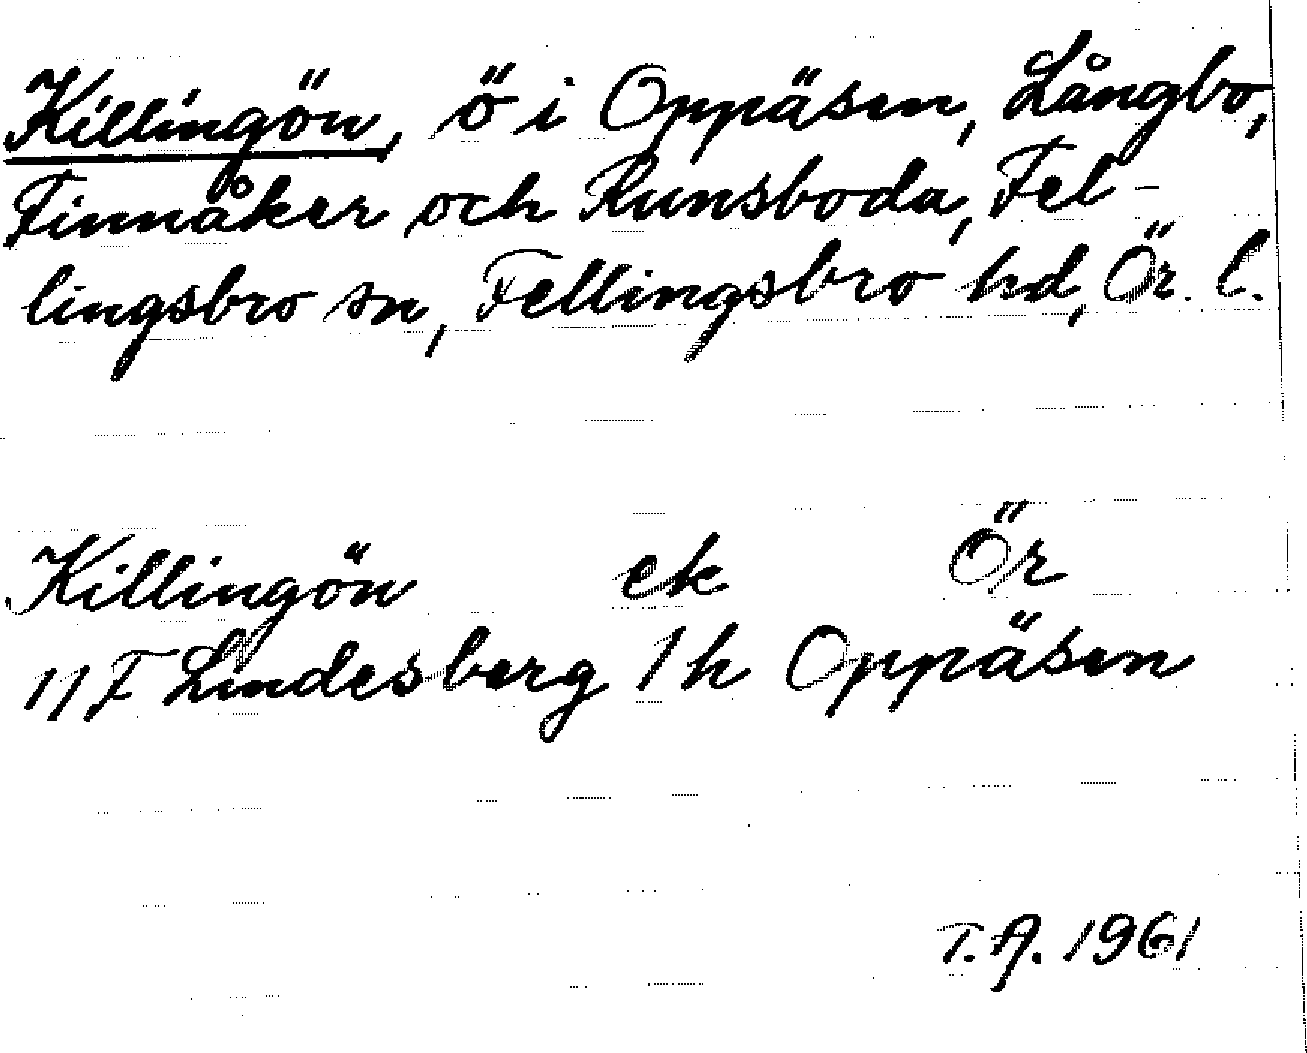 Killingön, ö i Oppäsen, Långbo,
Finnåker och Runsboda, Fel-
lingsbro sn, Fellingsbro hd, Ör. l.
Killingön ek Ör
11F Lindesberg 1h Oppäsen
T.A. 1961